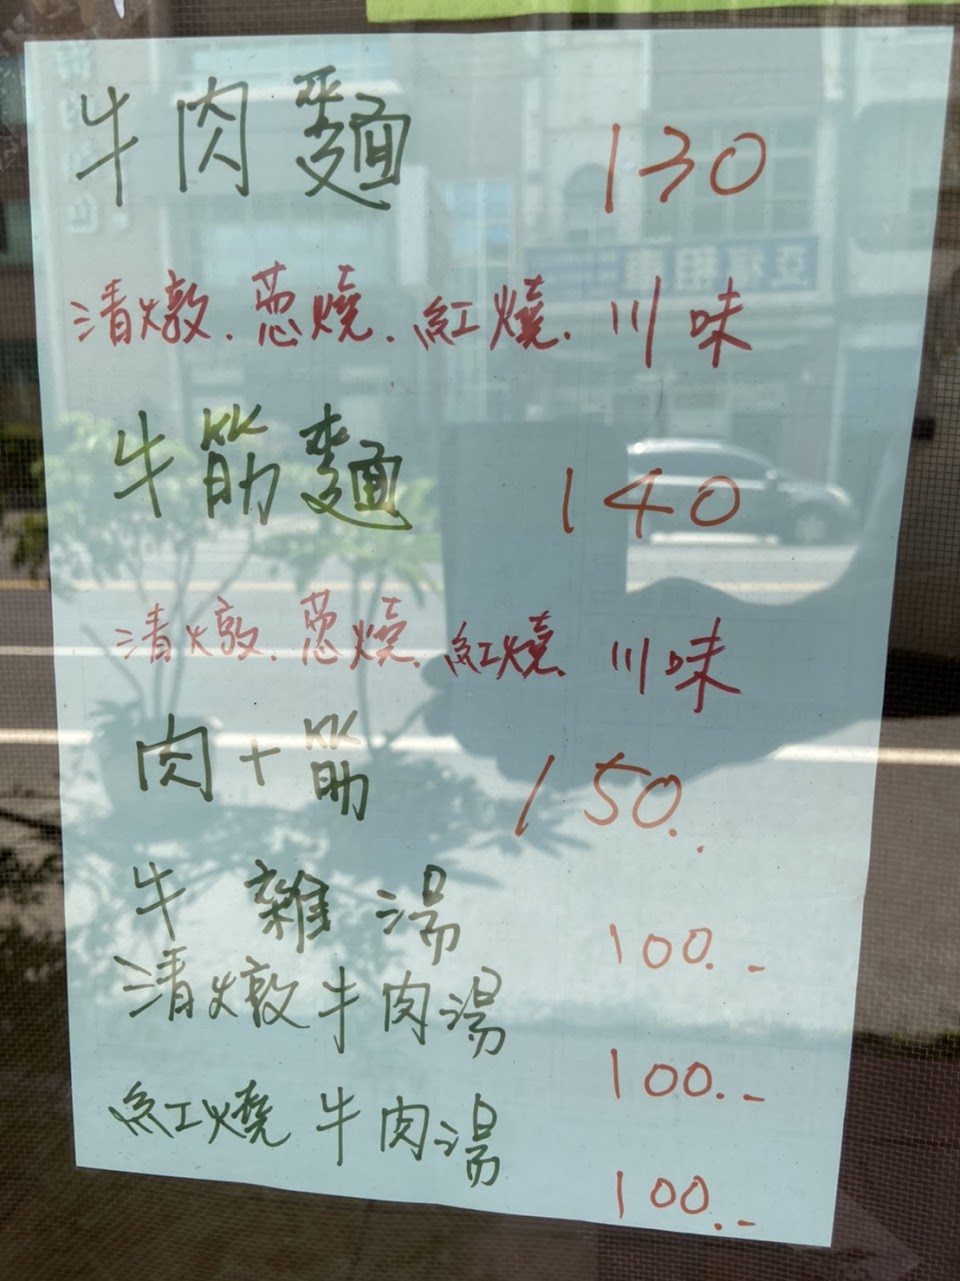 牛肉麵 130
清燉.蔥燒.紅燒.川味
牛筋麵 140
清燉.蔥燒.紅燒.川味
肉+筋 150.
牛雜湯 100.-
清燉牛肉湯 100.-
紅燒牛肉湯 100.-